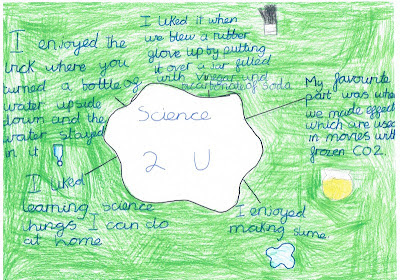 I enjoyed the
trick where you
turned a bottle of
water upside
down and the
water stayed
in it
I liked it when
we blew a rubber
glove up by putting
it over a jar filled
with vinegar and
nicarbonate of soda
My favourite
part was when
we made effects
which are used
in movies with
frozen CO2.
Science
2 U
I liked
learning science
things I can do
at home
I enjoyed
making slime